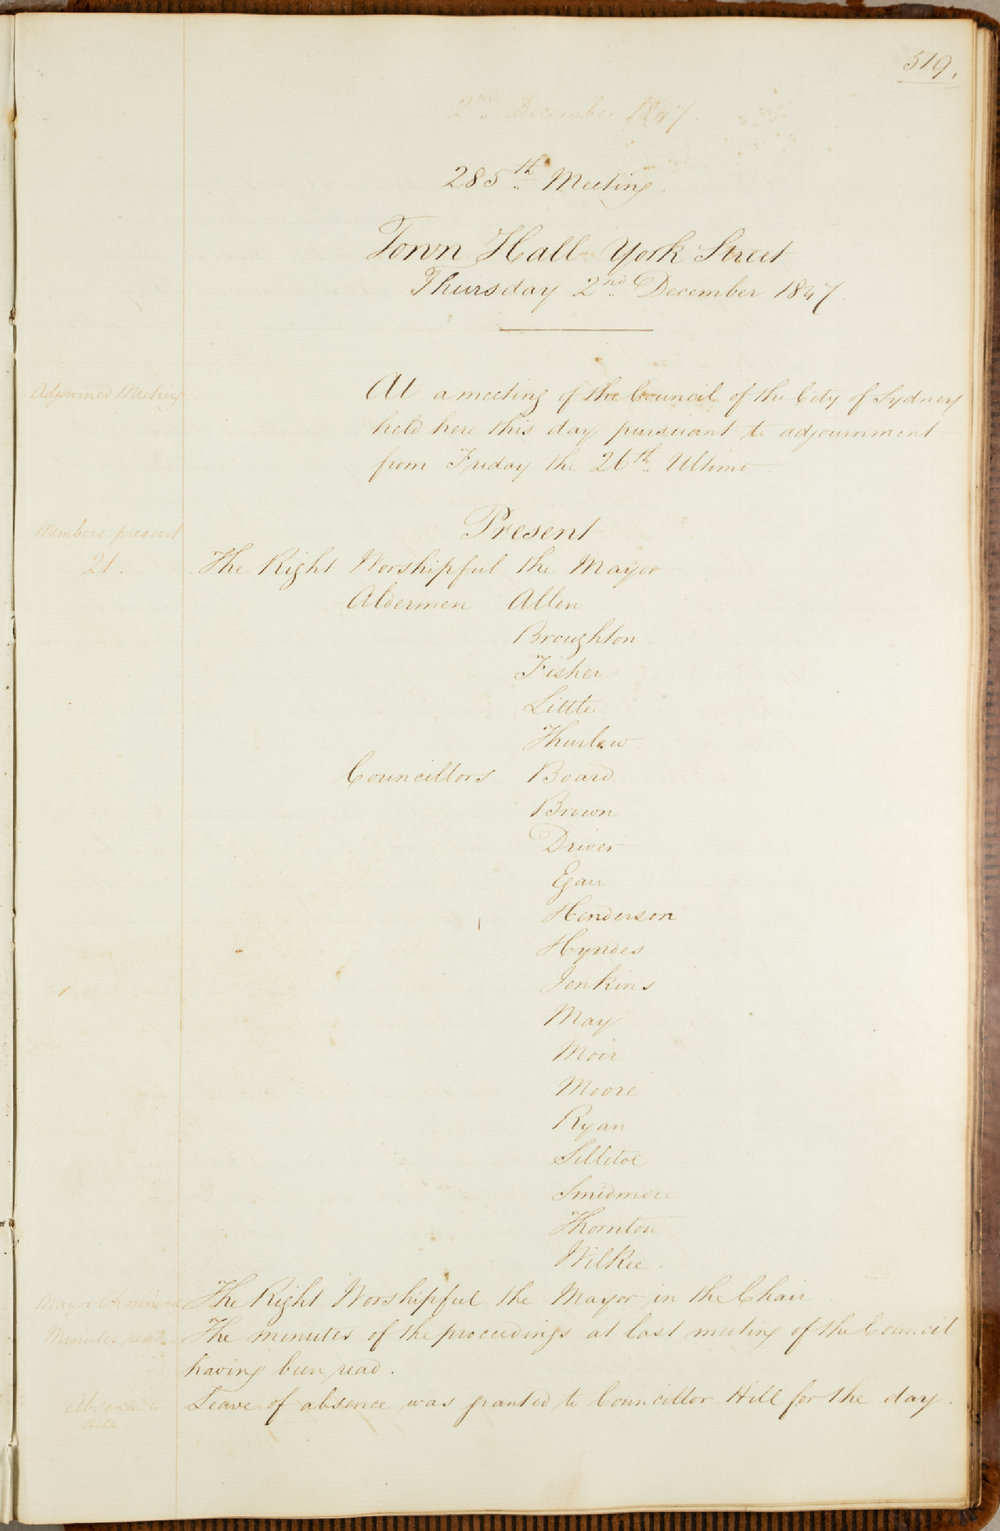 519.
2nd December 1847.
285th Meeting.
Town Hall York Street
Thursday 2nd December 1847.
Adjourned Meeting
At a meeting of the Council of the City of Sydney
held here this day pursuant to adjournment
from Friday the 26th Ultimo
Members present
21.
Present
The Right Worshipful the Mayor
Aldermen Allen
Broughton
Fisher
Little
Thurlow
Councillors Board
Brown
Driver
Egan
Henderson
Hyndes
Jenkins
May
Moir
Moore
Ryan
Sillitoe
Smidmore
Thornton
Wilkie.
Mayor Chairman
The Right Worshipful the Mayor in the Chair
Minutes read
The minutes of the proceedings at last meeting of the Council
having been read.
Absence
Hill
Leave of absence was granted to Councillor Hill for the day.